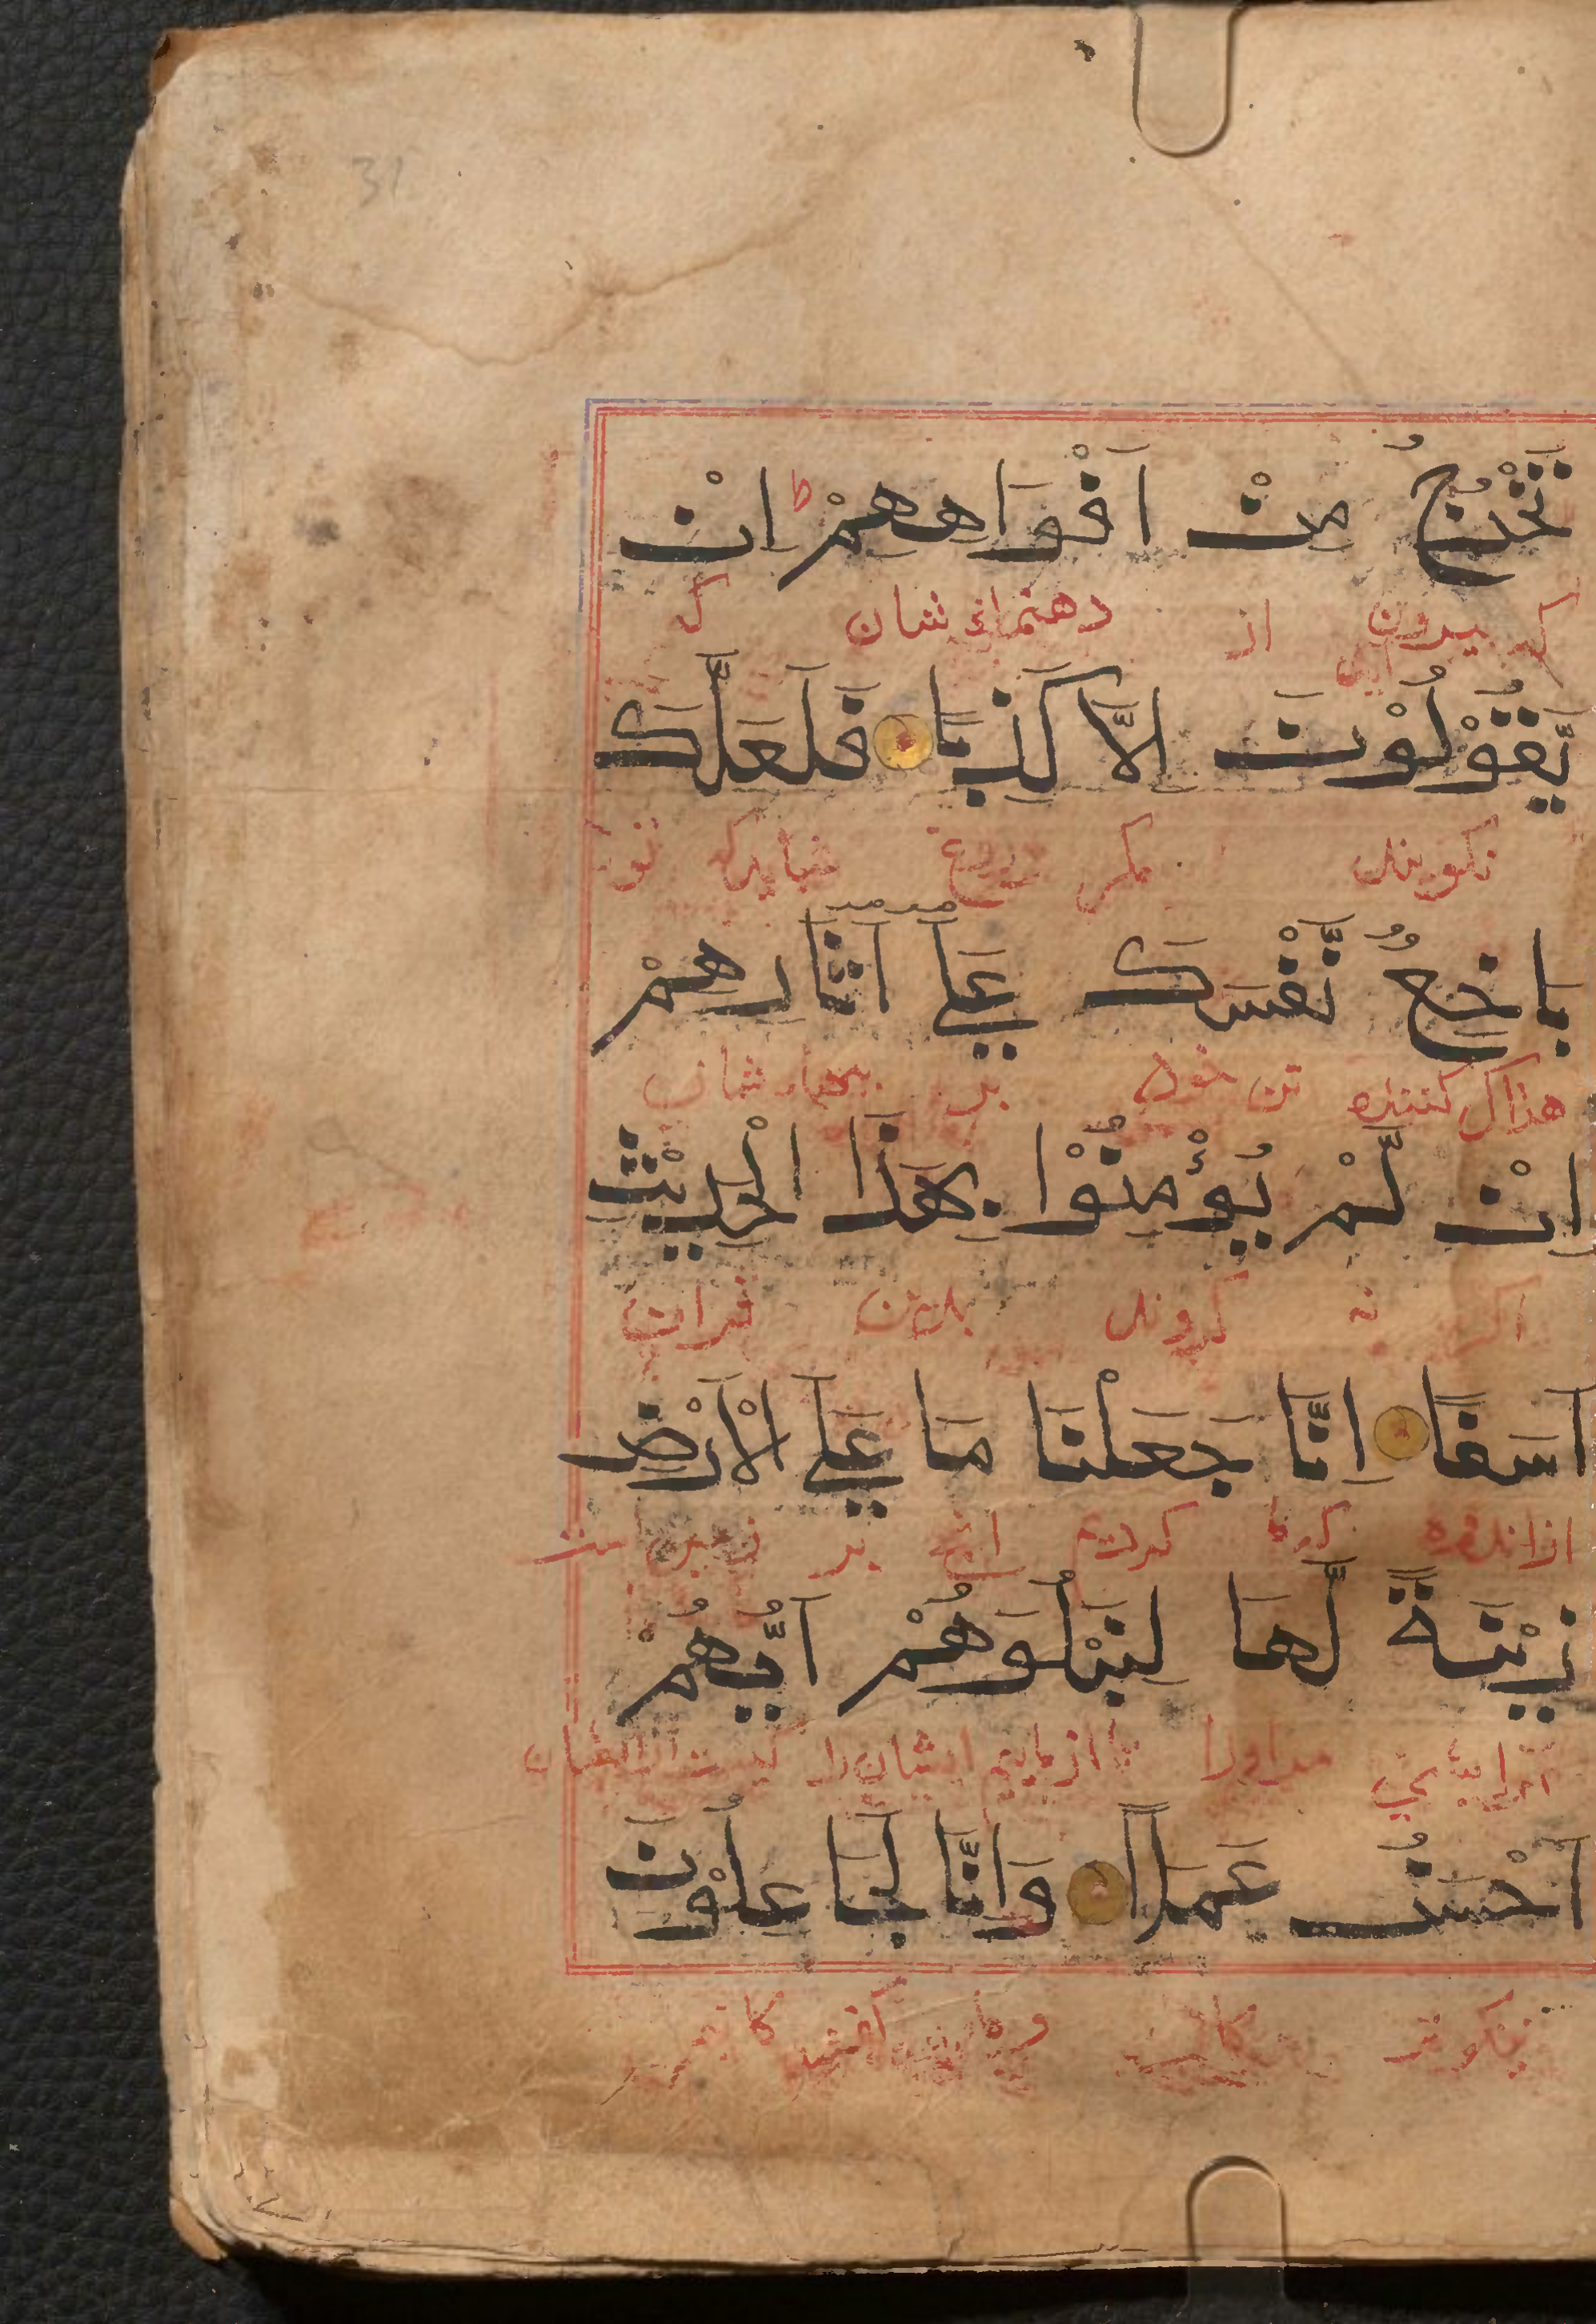 31
تَخْرُجُ مِنْ اَفْوَاهِهِمْ ط اِنْ
که بیرون آید از دهنهاء شان که
يَّقُوْلُوْنَ اِلَّا كَذِبًا فَلَعَلَّكَ
نکویند مکر دروغ شاید که تو
بَاخِعٌ نَّفْسَكَ عَلَي اٰثَارِهِمْ
هلاک کننده تن خود بر شان
اِنْ لَّمْ يُؤْمِنُوْا بِهٰذَا الْحَدِيْثِ
اکر نه کروند بدین قران
اَسَفًا اِنَّا جَعَلْنَا مَا عَلَي الْاَرْضِ
از اندوه کردیم انچ بر زمین است
زِيْنَةً لَّهَا لِنَبْلُوَهُمْ اَيُّهُمْ
ارایشی مر اورا تا ازماییم ایشان را
اَحْسَنُ عَمَلًا وَاِنَّا لَجَاعِلُوْنَ
نیکوتر